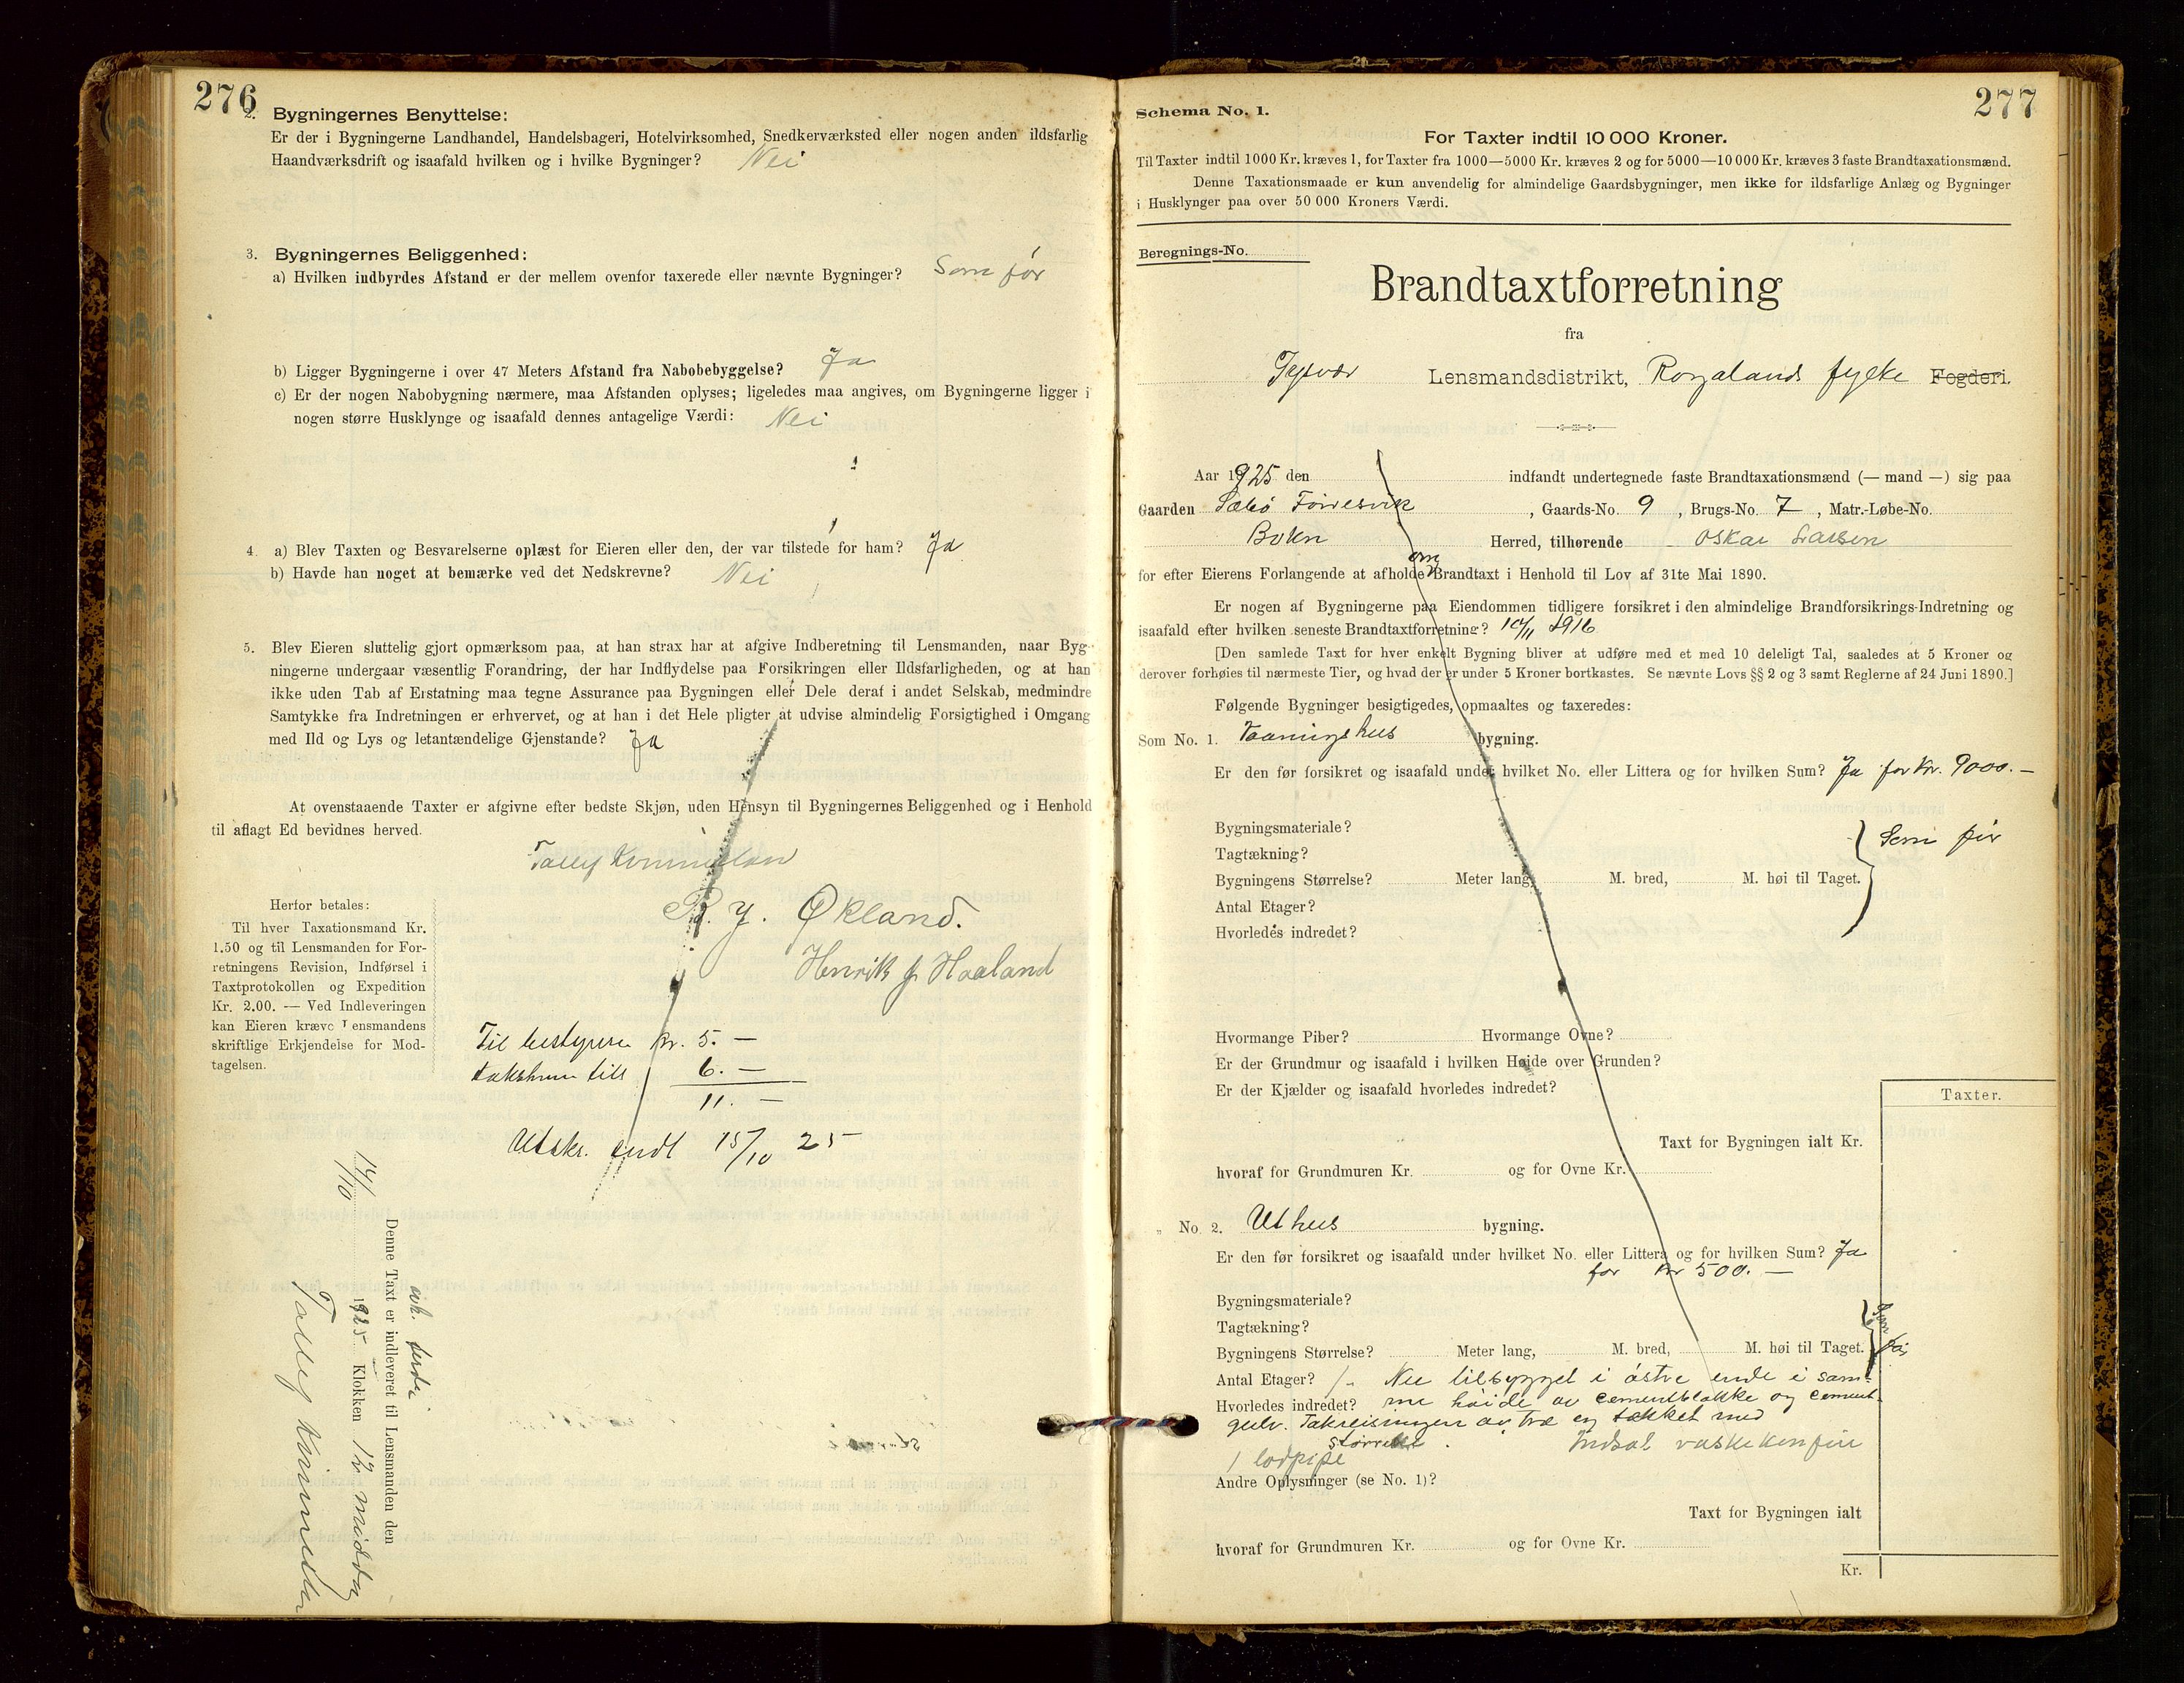 276
2. Bygningernes Benyttelse:
Er der i Bygningerne Landhandel, Handelsbageri, Hotelvirksomhed, Snedkerværksted eller nogen anden ildsfarlig
Haandværksdrift og isaafald hvilken og i hvilke Bygninger? Nei
3. Bygningernes Beliggenhed:
a) Hvilken indbyrdes Afstand er der mellem ovenfor taxerede eller nævnte Bygninger? Som før
b) Ligger Bygningerne i over 47 Meters Afstand fra Nabobebyggelse? Ja
c) Er der nogen Nabobygning nærmere, maa Afstanden oplyses; ligeledes maa angives, om Bygningerne ligger i
nogen større Husklynge og isaafald dennes antagelige Værdi: Nei
4. a) Blev Taxten og Besvarelserne oplæst for Eieren eller den, der var tilstede for ham? Ja
b) Havde han noget at bemærke ved det Nedskrevne? Nei
5. Blev Eieren sluttelig gjort opmærksom paa, at han strax har at afgive Indberetning til Lensmanden, naar Byg-
ningerne undergaar væsentlig Forandring, der har Indflydelse paa Forsikringen eller Ildsfarligheden, og at han
ikke uden Tab af Erstatning maa tegne Assurance paa Bygningen eller Dele deraf i andet Selskab, medmindre
Samtykke fra Indretningen er erhvervet, og at han i det Hele pligter at udvise almindelig Forsigtighed i Omgang
med Ild og Lys og letantændelige Gjenstande? Ja
At ovenstaaende Taxter er afgivne efter bedste Skjøn, uden Hensyn til Bygningernes Beliggenhed og i Henhold
til aflagt Ed bevidnes herved.
R. J. Økland.
Henrik J. Haaland
Herfor betales:
Til hver Taxationsmand Kr.
1.50 og til Lensmanden for For-
retningens Revision, Indførsel i
Taxtprotokollen og Expedition
Kr. 2.00. — Ved Indleveringen
kan Eieren kræve Lensmandens
skriftlige Erkjendelse for Mod-
tagelsen.
Til bestyrere kr. 5. —
6. —
11. —
Utskr. sendt 15/10 25
Denne Taxt er indleveret til Lensmanden den
14/10 1925 Klokken 12 middag
277
Schema No. 1.
For Taxter indtil 10 000 Kroner.
Til Taxter indtil 1000 Kr. kræves 1, for Taxter fra 1000—5000 Kr. kræves 2 og for 5000—10 000 Kr. kræves 3 faste Brandtaxationsmænd.
Denne Taxationsmaade er kun anvendelig for almindelige Gaardsbygninger, men ikke for ildsfarlige Anlæg og Bygninger
i Husklynger paa over 50 000 Kroners Værdi.
Beregnings-No.
Brandtaxtforretning
fra
Tysvær Lensmandsdistrikt, Rogalands fylke Fogderi.
Aar 1925 den indfandt undertegnede faste Brandtaxationsmænd (— mand —) sig paa
Gaarden Sæbø Føresvik, Gaards-No. 9, Brugs-No. 7, Matr.-Løbe-No.
Bokn Herred, tilhørende Oskar Larsen
for efter Eierens Forlangende at afholde om Brandtaxt i Henhold til Lov af 31te Mai 1890.
Er nogen af Bygningerne paa Eiendommen tidligere forsikret i den almindelige Brandforsikrings-Indretning og
isaafald efter hvilken seneste Brandtaxtforretning? 10/11 1916
[Den samlede Taxt for hver enkelt Bygning bliver at udføre med et med 10 deleligt Tal, saaledes at 5 Kroner og
derover forhøies til nærmeste Tier, og hvad der er under 5 Kroner bortkastes. Se nævnte Lovs §§ 2 og 3 samt Reglerne af 24 Juni 1890.]
Følgende Bygninger besigtigedes, opmaaltes og taxeredes:
Som No. 1. Vaaningshus bygning.
Er den før forsikret og isaafald under hvilket No. eller Littera og for hvilken Sum? Ja for Kr. 9000. —
Bygningsmateriale?
Tagtækning? Som før
Bygningens Størrelse? Meter lang, M. bred, M. høi til Taget.
Antal Etager?
Hvorledes indredet?
Hvormange Piber? Hvormange Ovne?
Er der Grundmur og isaafald i hvilken Høide over Grunden?
Er der Kjælder og isaafald hvorledes indredet?
Taxter.
Taxt for Bygningen ialt Kr.
hvoraf for Grundmuren Kr. og for Ovne Kr.
" No. 2. Uthus bygning.
Er den før forsikret og isaafald under hvilket No. eller Littera og for hvilken Sum? Ja
for kr 500. —
Bygningsmateriale?
Tagtækning? Som
Bygningens Størrelse? Meter lang, M. bred, M. høi til Taget. før
Antal Etager? 1. Nu tilbygget i østre ende i sam-
Hvorledes indredet? me høide av cementblokke og cement-
gulv. Takreisningen av træ og tækket med
størrelse . Indsat vaskekomfur
1 lodpipe
Andre Oplysninger (se No. 1)?
Taxt for Bygningen ialt
hvoraf for Grundmuren Kr. og for Ovne Kr.
Kr.